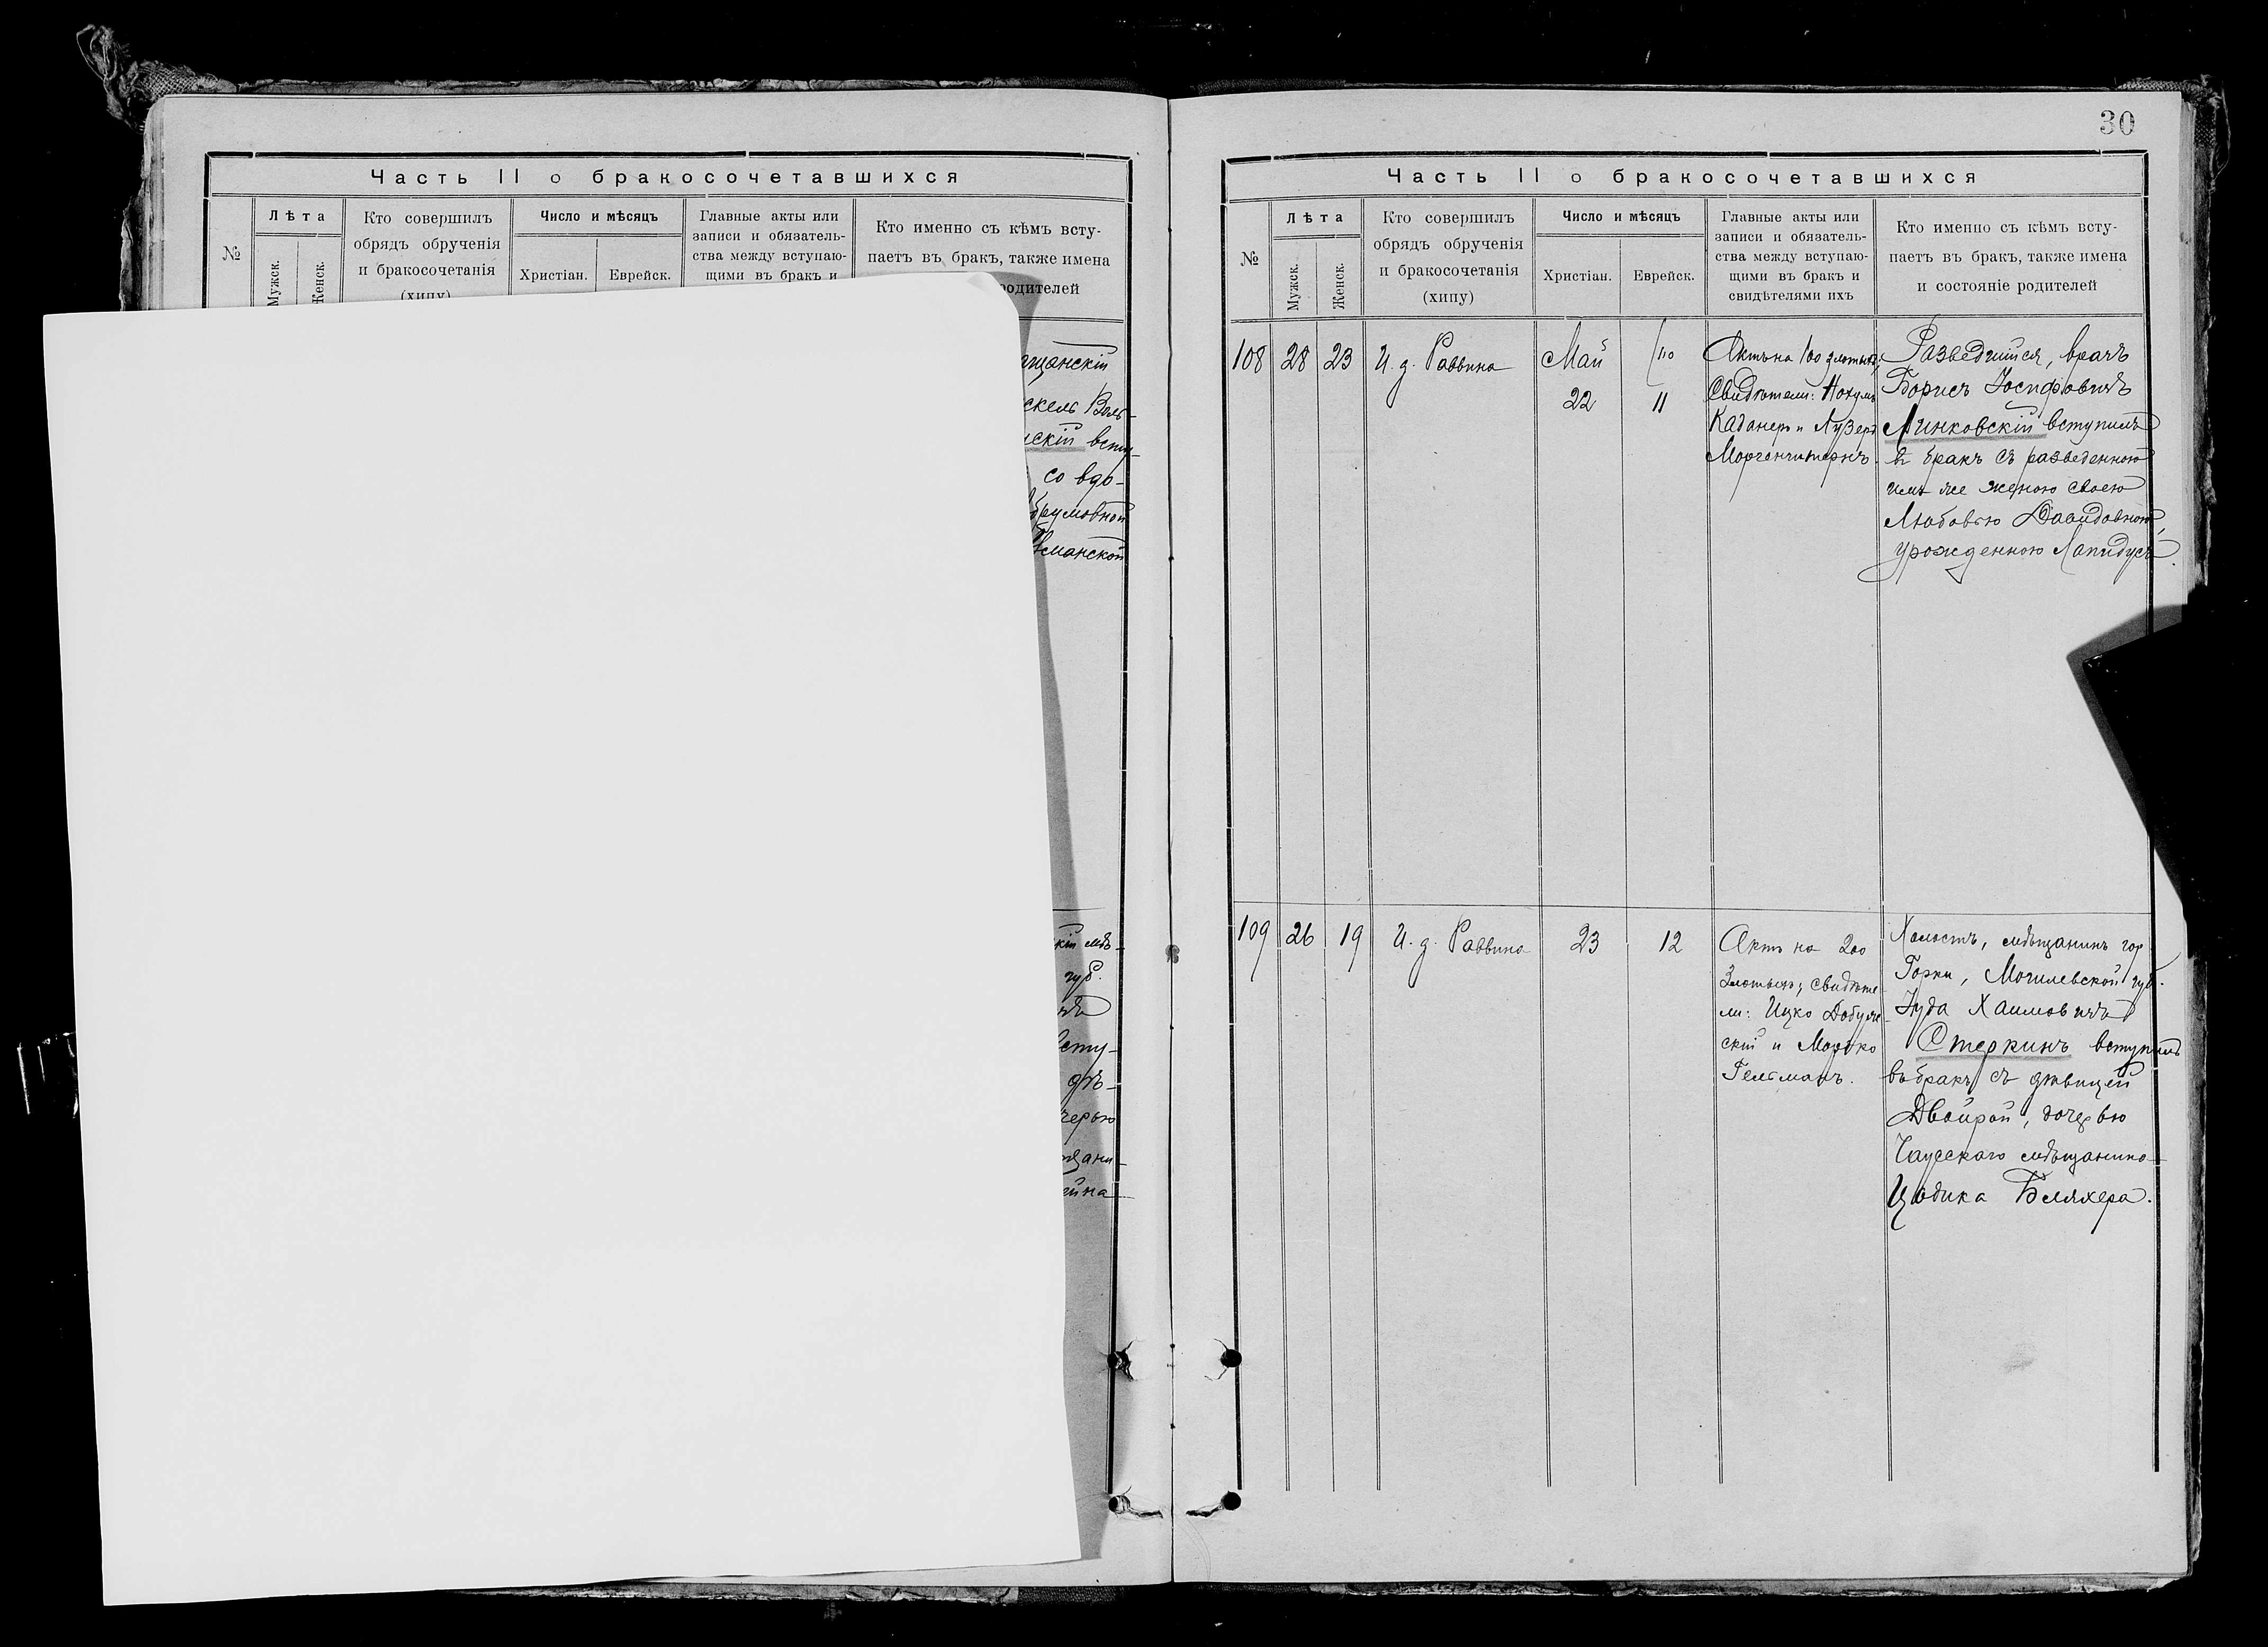 Часть II о бракосочетавшихся
№
Лѣта
Мужск.
Женск.
Кто совершилъ
обрядъ обрученія
и бракосочетанія
(хипу)
Число и мѣсяцъ
Христіан.
Еврейск.
Главные акты или
записи и обязатель-
ства между вступаю-
щими въ бракъ и
Кто именно съ кѣмъ всту-
паетъ въ бракъ, также имена
родителей
всту-
со вдо-
губ.
дѣ-
30
Часть II о бракосочетавшихся
№
Лѣта
Мужск.
Женск.
Кто совершилъ
обрядъ обрученія
и бракосочетанія
(хипу)
Число и мѣсяцъ
Христіан.
Еврейск.
Главные акты или
записи и обязатель-
ства между вступаю-
щими въ бракъ и
свидѣтелями ихъ
Кто именно съ кѣмъ всту-
паетъ въ бракъ, также имена
и состояніе родителей
108
28
23
И. д. Раввина
Май
22
11
Актъ на 100 злотыхъ;
Свидѣтели: Нохумъ
Каданеръ и Лузеръ
Моргенштернъ.
Разведшійся, врачъ
Борисъ Іосифовичъ
Минковскій вступилъ
въ бракъ съ разведенною
имъ же женою своею
Любовью Давидовною,
урожденною Лапидусъ.
109
26
19
И. д. Раввина
23
12
Актъ на 200
злотыхъ; свидѣте-
ли: Ицко
скій и Мордко
Гельманъ.
Холостъ, мѣщанинъ гор.
Горки, Могилевской губ.
Іуда Хаимовичъ
Стеркинъ вступилъ
въ бракъ съ дѣвицей
Двойрой, дочерью
Чаусскаго мѣщанина
Цодика Бляхера.